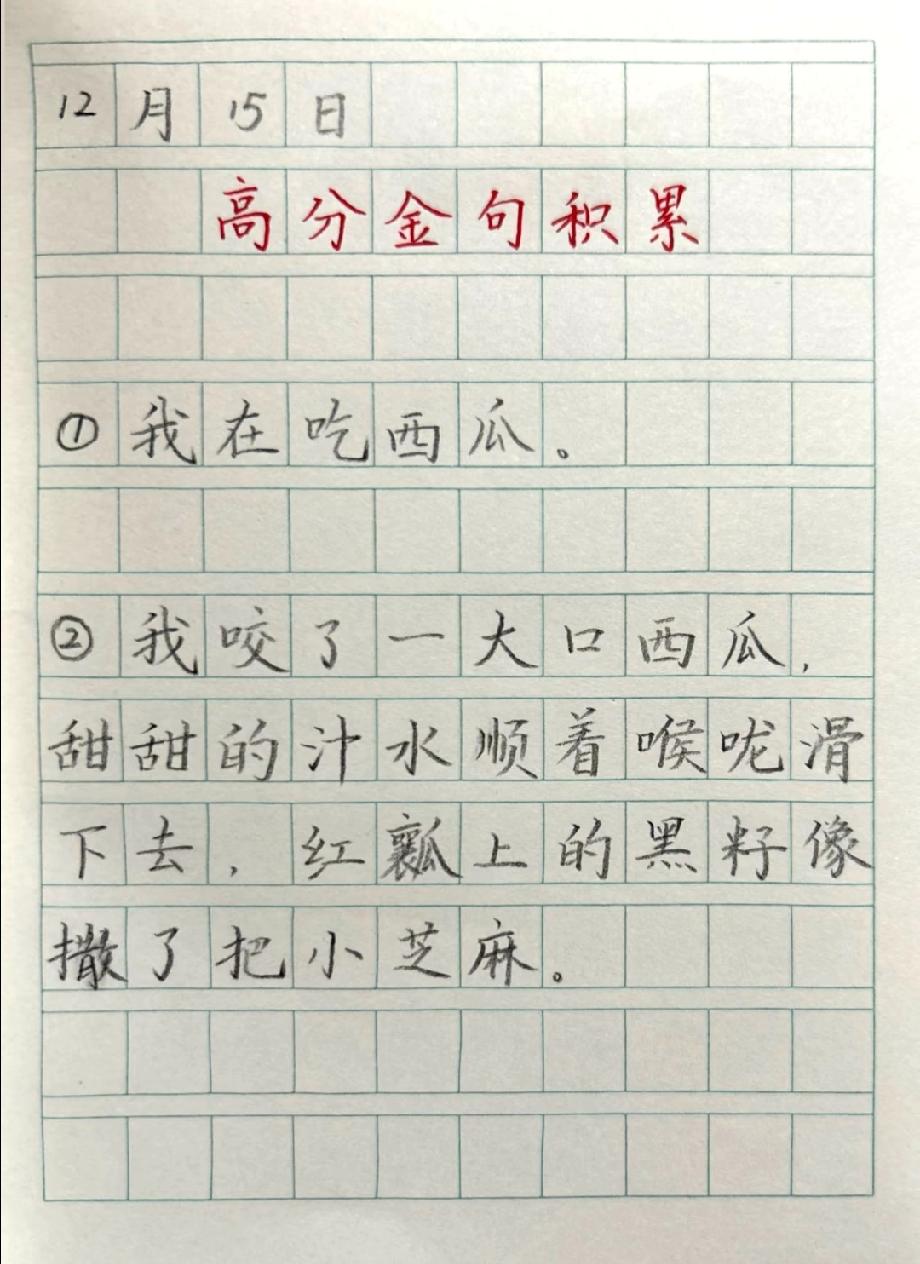 12月15日
高分金句积累
①我在吃西瓜。
②我咬了一大口西瓜，
甜甜的汁水顺着喉咙滑
下去，红瓤上的黑籽像
撒了把小芝麻。